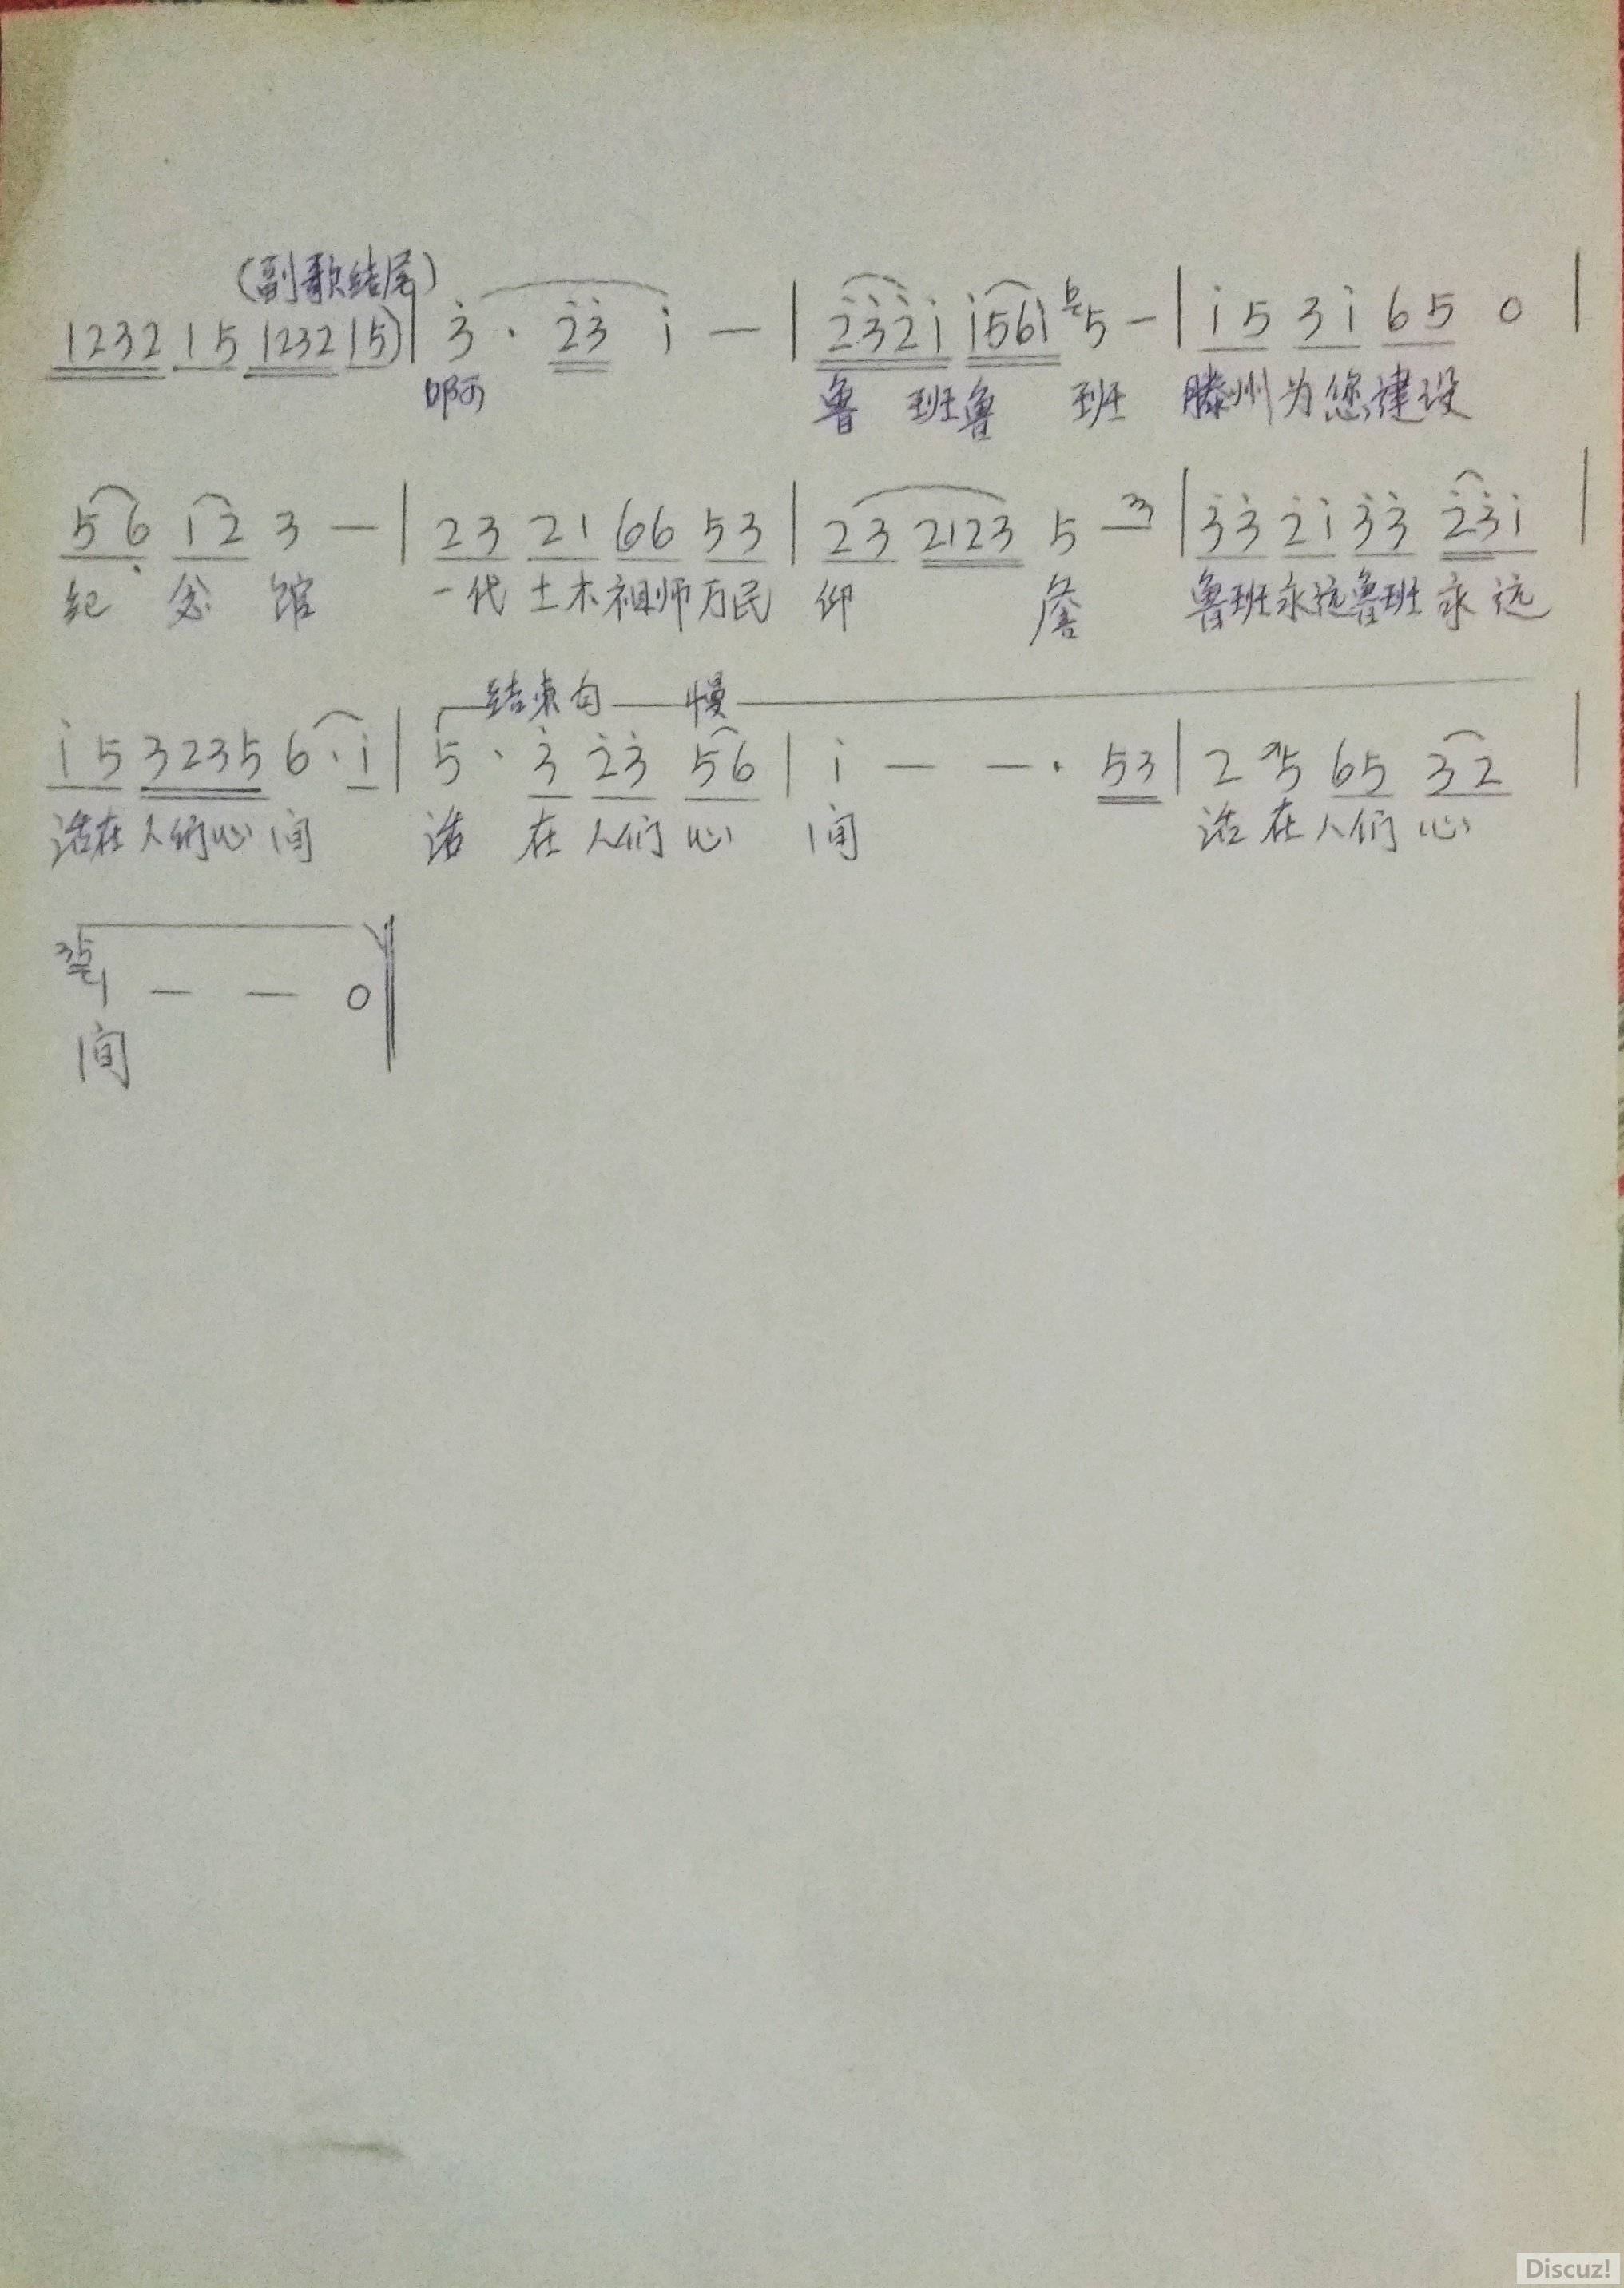 (副歌结尾)
1232 15 1232 15)| 3̇ · 2̇3̇ i̇ — | 2̇3̇2̇i̇ i̇56i̇ 5 — | i̇5 3i̇ 65 0 |
啊 鲁 班鲁 班 滕州为您建设
56̣ 12 3 — | 23 21 66 53 | 23 2123 5 — 3 | 3̇3̇ 2̇i̇ 3̇3̇ 2̇3̇i̇ |
纪 念 馆 一代 土木祖师万民 仰 詹 鲁班永远鲁班 永远
结束句 慢
i̇5 3235 6·i̇ | 5 · 3̇ 2̇3̇ 56 | i̇ — — · 53 | 2 5 65 32 |
活在人们心间 活 在 人们 心 间 活 在人们 心
35 1 — — 0 ‖
间
Discuz!